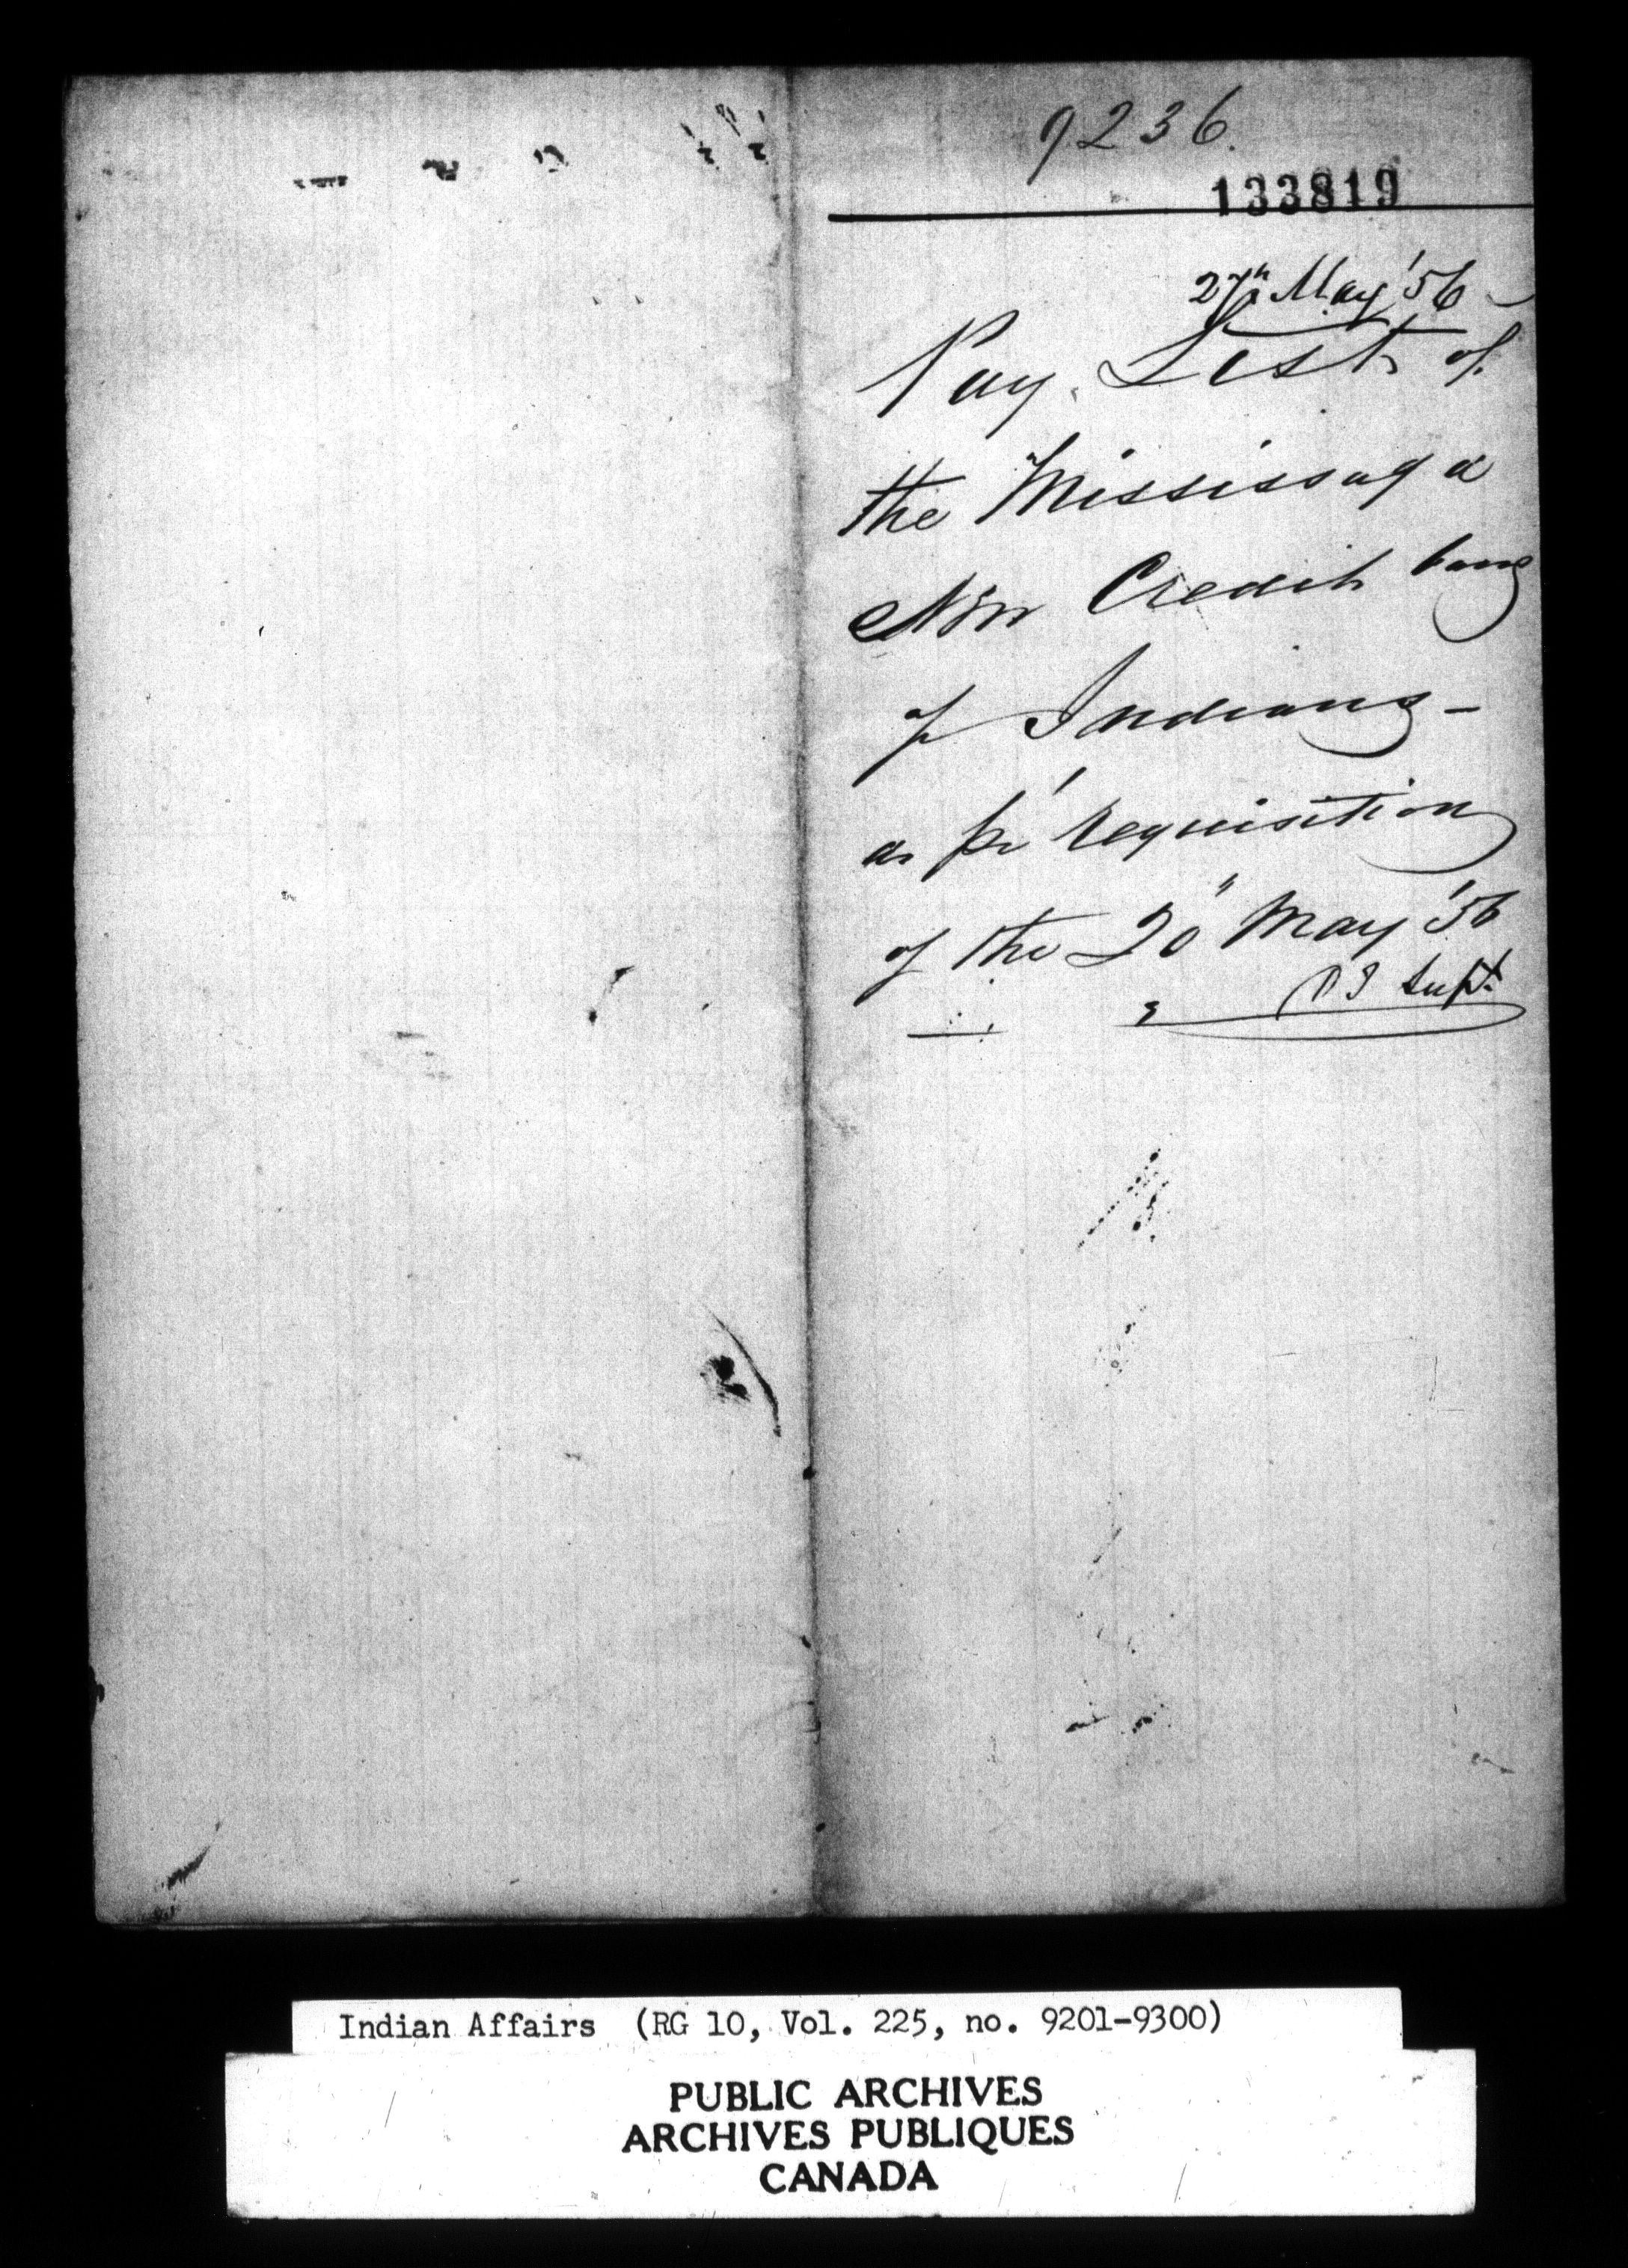 9236.
133819
27th May '56
Pay List of
the Mississaga
New Credit band
of Indians -
as pr requisition
of the 20" May '56
Supt.
Indian Affairs (RG 10, Vol. 225, no. 9201-9300)
PUBLIC ARCHIVES
ARCHIVES PUBLIQUES
CANADA